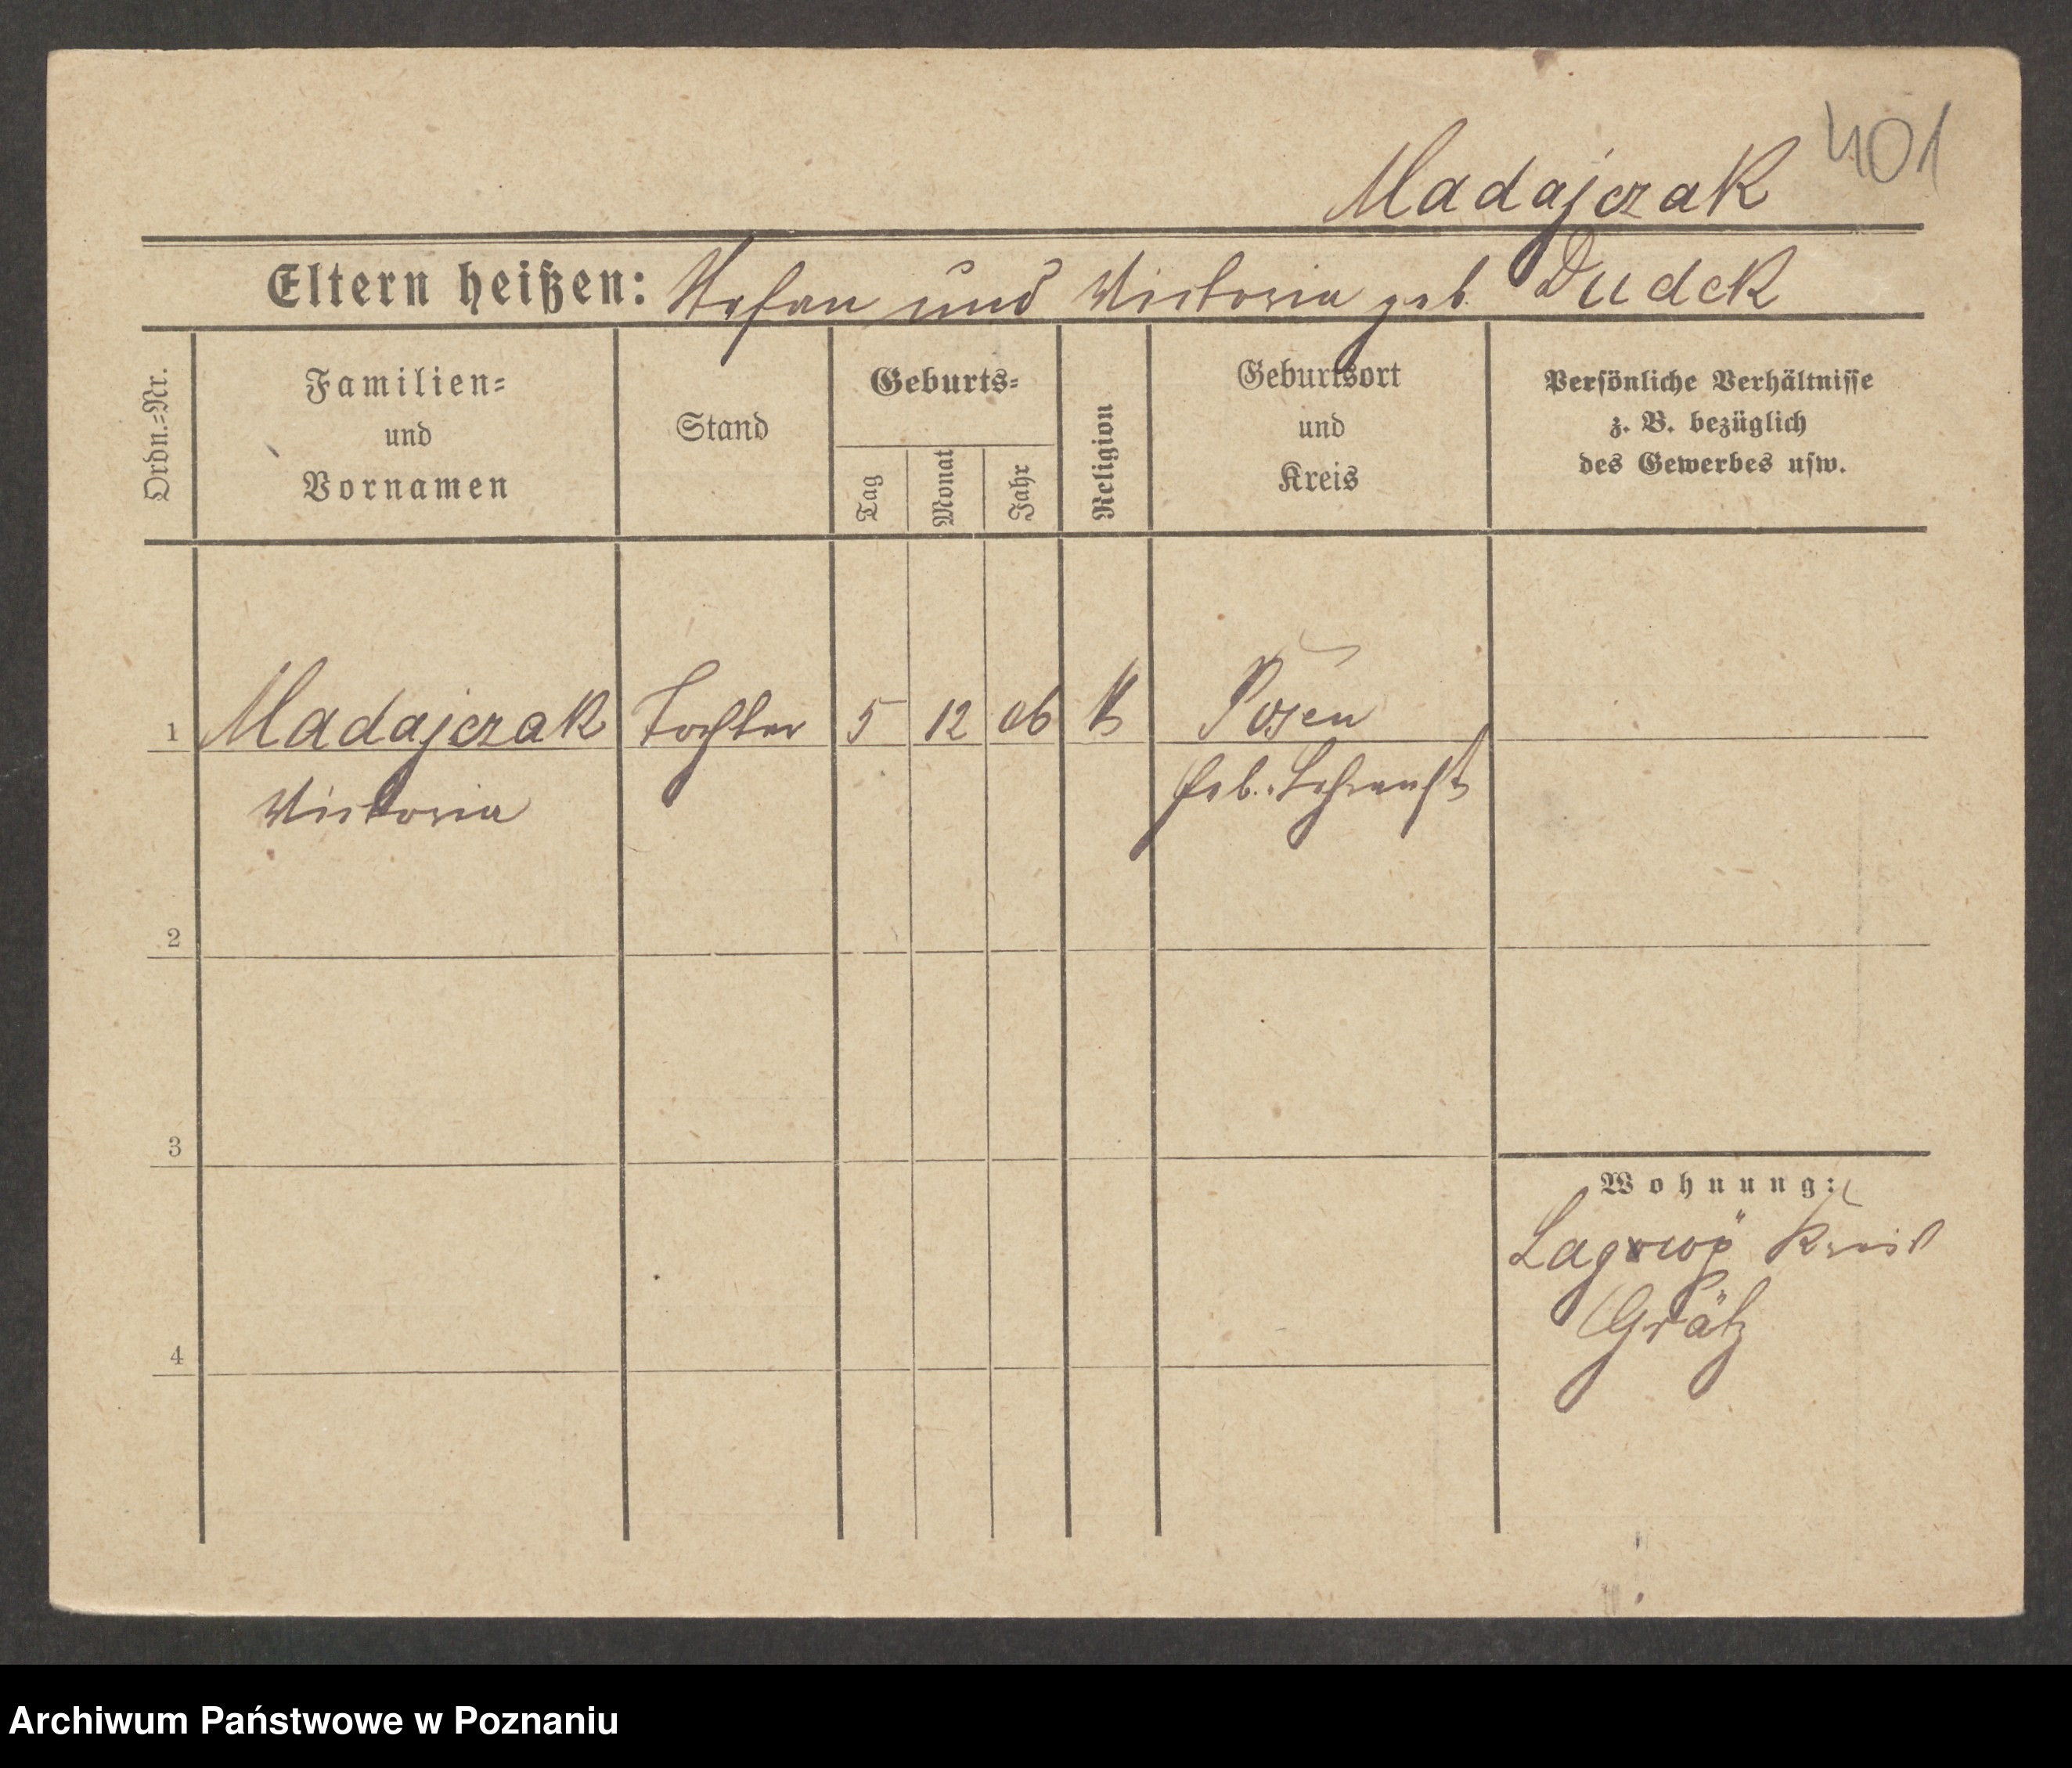 401
Madajczak
Eltern heißen: Stefan und Victoria geb. Dudek
Ordn.=Nr.
Familien=
und
Vornamen
Stand
Geburts=
Tag
Monat
Jahr
Religion
Geburtsort
und
Kreis
Persönliche Verhältnisse
z. B. bezüglich
des Gewerbes usw.
1 Madajczak Tochter 5 12 06 k Posen
Victoria Heb. Lehranst
2
3
4
Wohnung:
Kreis
Grätz
Archiwum Państwowe w Poznaniu